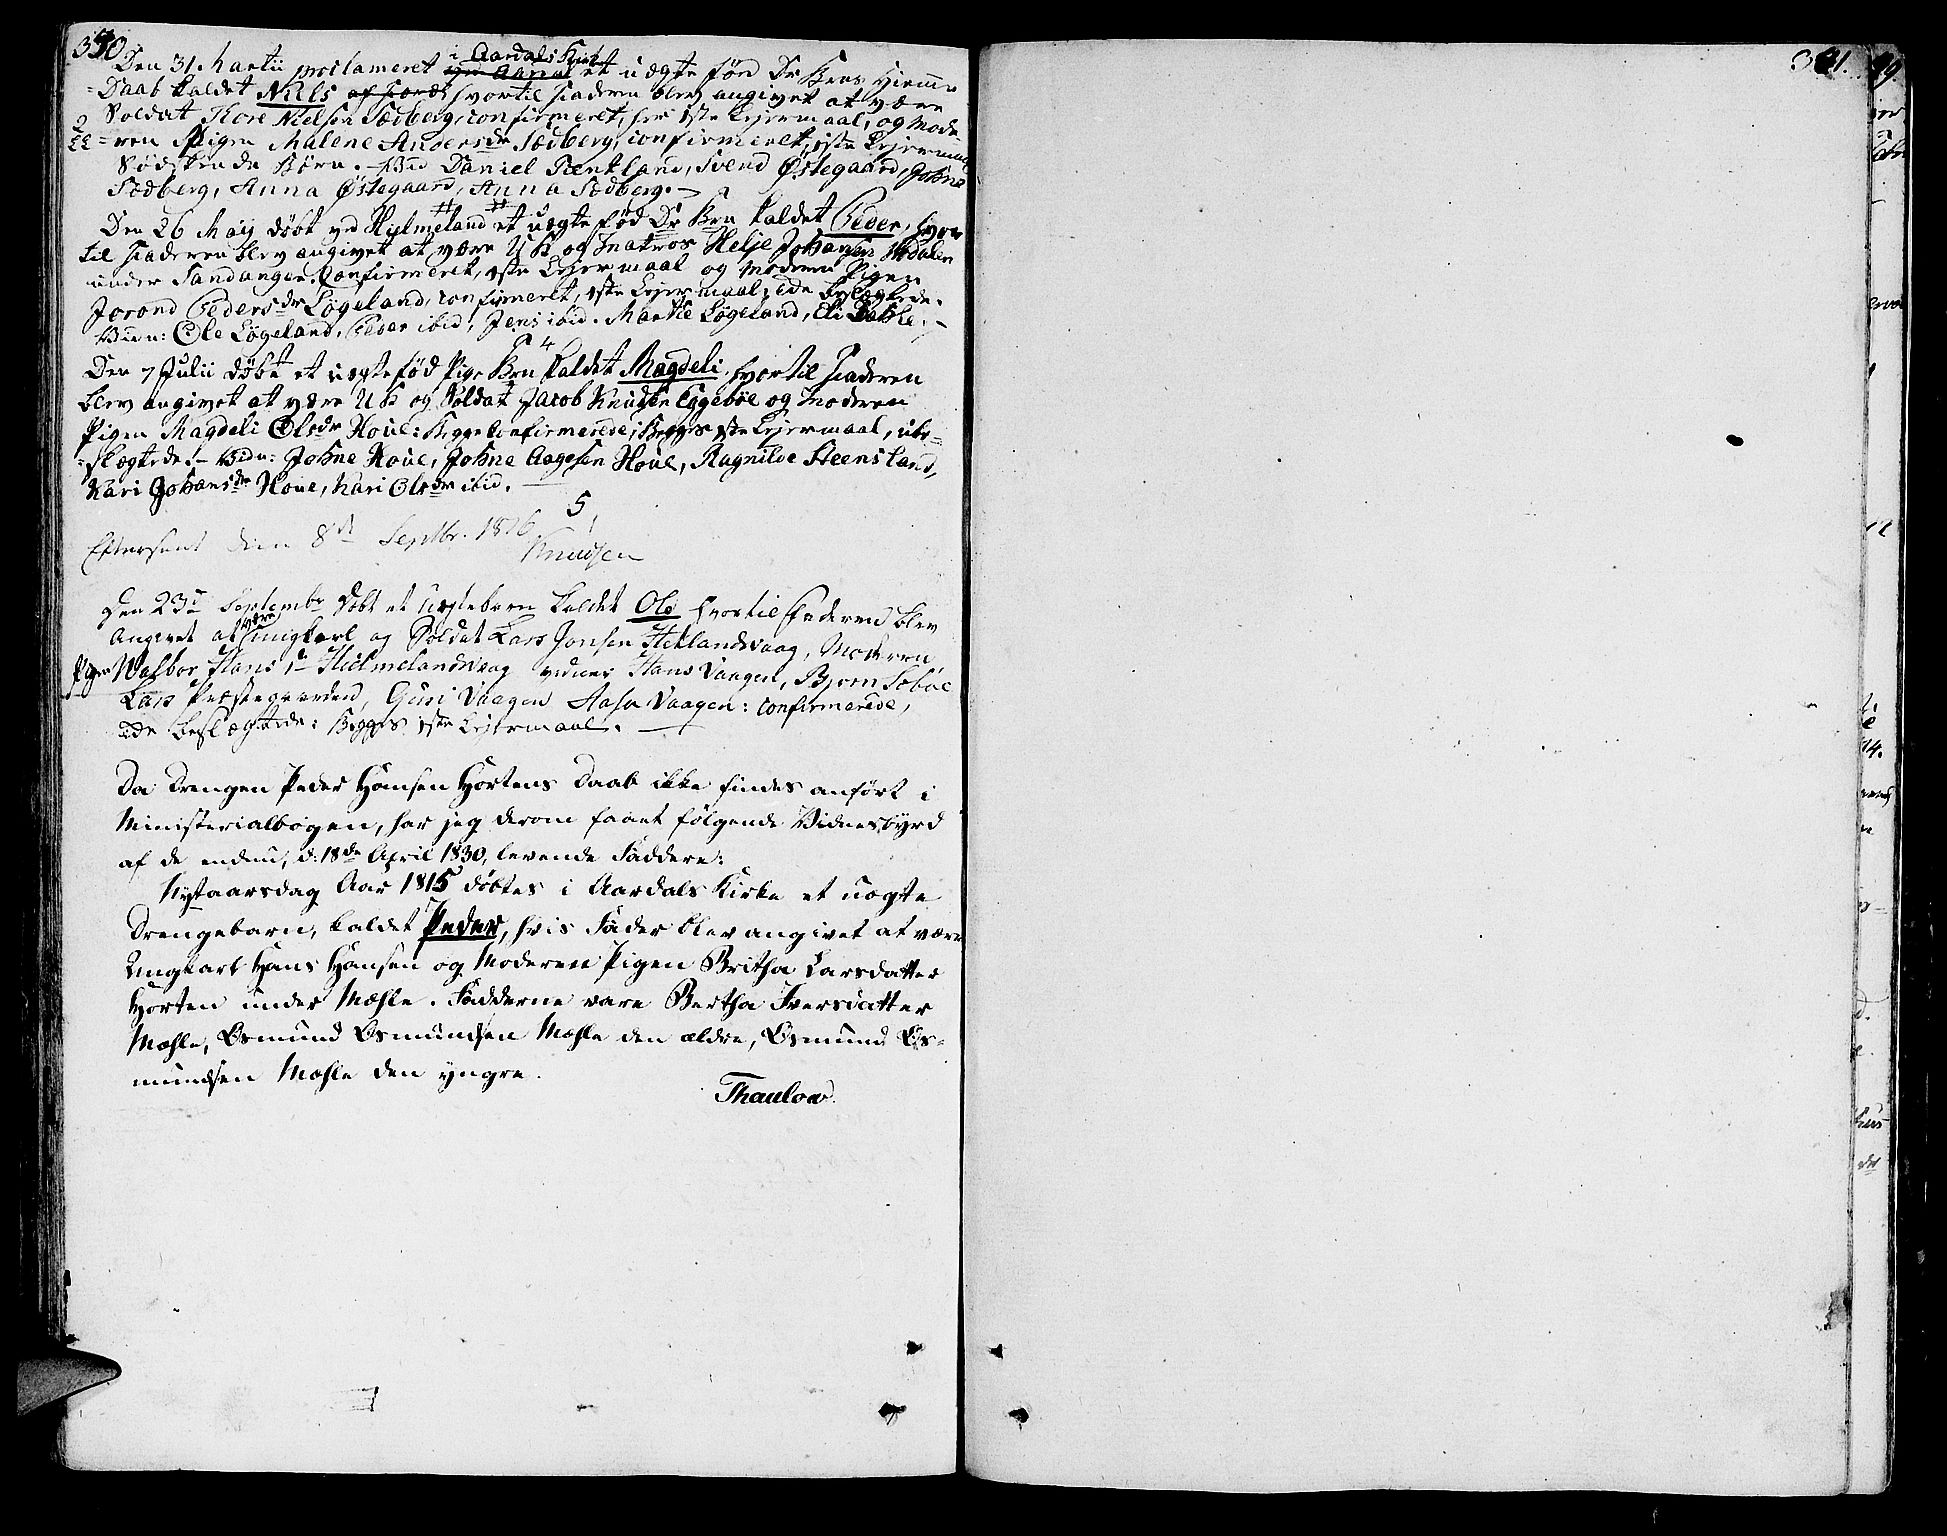 370
Den 31. Martii proclameret i Aardals Kirke
ved Aardal et uægte fød Dr Brns Hiemme
=Daab kaldet Niels hvortil Faderen blev angivet at være
Soldat Thore Nielsen Sedberg, confirmeret, hos 1ste Lejermaal, og Mode
=ren Pigen Malene Andersdr Sedberg, confirmeret, 1ste Lejermaal
Södskende Börn. Vid Daniel Tentland, Svend Østegaard, Johne
Sedberg, Anna Østegaard, Anna Sedberg.
Den 26 Maij döbt ved Hielmeland et uægte fød Dr Brn kaldet Peder, hvor
til Faderen blev angivet at være UK og Matros Helje Johansen
under Sandanger Confirmeret, 1ste Lejermaal og Moderen Pigen
Jorond Pedersdr Løgeland, confirmeret, 1ste Lejermaal, ube beslægtede.
Vidn: Ole Løgeland, Peder ibid, Jens ibid. Marthe Løgeland, Eli
4
Den 7 Julii döbt et uægte fød Pige Brn kaldet Magdeli, hvortil Faderen
blev angivet at være UK og Soldat Jacob Knudsen Eggebøe og Moderen
Pigen Magdeli Olsdr Houe: Begge Confirmerede; Begges 1ste Lejermaal, ube=
=slægtede.- Vidn: Johne Houe, Johne Aagesen Houe, Ragnilde Steensland,
Kari Johansdr Houe, Kari Olsdr ibid.
5
Efterseet den 8de Septbr. 1816
Knudsen
Den 23de Septembr döbt et Uægtebarn kaldet Ole hvortil Faderen blev
Angivet at være Ungkarl og Soldat Lars Jonsen Hetlandsvaag, Moderen,
Pigen Walbor Hansdr Hielmelandsvaag vidner Hans Vaagen, Bjørn Sebøe
Lars Præstegaarden, Guri Vaagen Aasa Vaagen: confirmerede,
ube beslægtede: Begges 1ste Lejermaal.
Da Drengen Peder Hansen Hortens Daab ikke findes anført i
Ministerialbogen, har jeg derom faaet følgende Vidnesbyrd
af de endnu, d: 18de April 1830, levende Faddere:
Nytaarsdag Aar 1815 døbtes i Aardals Kirke et uægte
Drengebarn, kaldet Peder, hvis Fader blev angivet at være
Ungkarl Hans Hansen og Moderen Pigen Britha Larsdatter
Horten under Mæhle. Fadderne vare Bertha Iversdatter
Mæhle, Osmund Osmundsen Mæhle den ældre, Osmund Os-
mundsen Mæhle den yngre.
Thaulow.